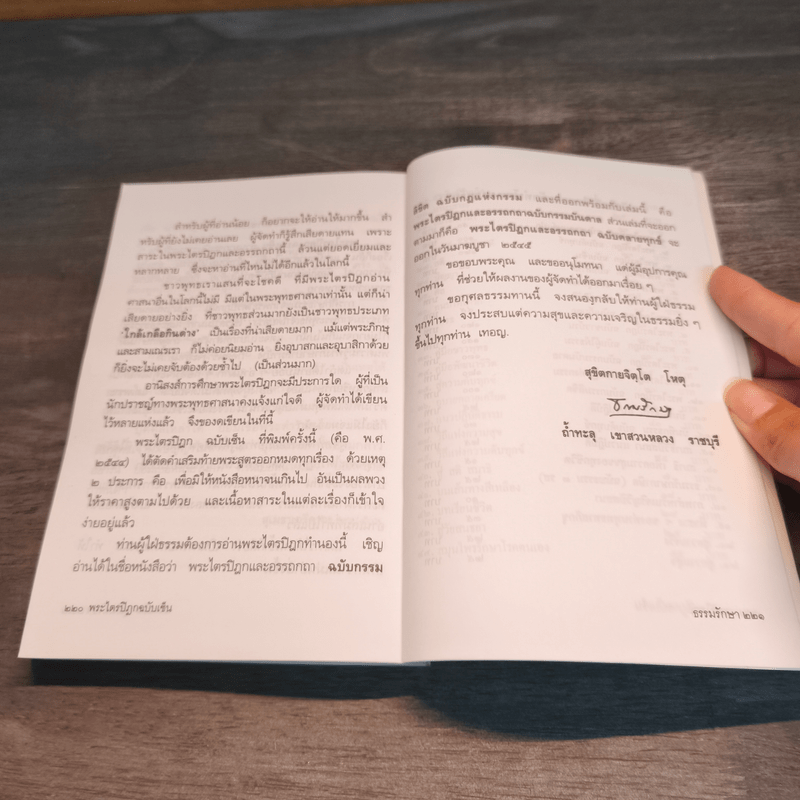 สำหรับผู้ที่อ่านน้อย ก็อยากจะให้อ่านให้มากขึ้น สำ
หรับผู้ที่ยังไม่เคยอ่านเลย ผู้จัดทำก็รู้สึกเสียดายแทน เพราะ
สาระในพระไตรปิฎกและอรรถกถานี้ ล้วนแต่ยอดเยี่ยมและ
หลากหลาย ซึ่งจะหาอ่านที่ไหนไม่ได้อีกแล้วในโลกนี้
ชาวพุทธเราแสนที่จะโชคดี ที่มีพระไตรปิฎกอ่าน
ศาสนาอื่นในโลกนี้ไม่มี มีแต่ในพระพุทธศาสนาเท่านั้น แต่ก็น่า
เสียดายอย่างยิ่ง ที่ชาวพุทธส่วนมากยังเป็นชาวพุทธประเภท
"ใกล้เกลือกินด่าง" เป็นเรื่องที่น่าเสียดายมาก แม้แต่พระภิกษุ
และสามเณรเรา ก็ไม่ค่อยนิยมอ่าน ยิ่งอุบาสกและอุบาสิกาด้วย
ก็ยิ่งจะไม่เคยจับต้องด้วยซ้ำไป (เป็นส่วนมาก)
อานิสงส์การศึกษาพระไตรปิฎกจะมีประการใด ผู้ที่เป็น
นักปราชญ์ทางพระพุทธศาสนาคงแจ้งแก่ใจดี ผู้จัดทำได้เขียน
ไว้หลายแห่งแล้ว จึงของดเขียนในที่นี้
พระไตรปิฎก ฉบับเซ็น ที่พิมพ์ครั้งนี้ (คือ พ.ศ.
๒๕๔๔) ได้ตัดคำเสริมท้ายพระสูตรออกหมดทุกเรื่อง ด้วยเหตุ
๒ ประการ คือ เพื่อมิให้หนังสือหนาจนเกินไป อันเป็นผลพวง
ให้ราคาสูงตามไปด้วย และเนื้อหาสาระในแต่ละเรื่องก็เข้าใจ
ง่ายอยู่แล้ว
ท่านผู้ใฝ่ธรรมต้องการอ่านพระไตรปิฎกทำนองนี้ เชิญ
อ่านได้ในชื่อหนังสือว่า พระไตรปิฎกและอรรถกถา ฉบับกรรม
๒๒๐ พระไตรปิฎกฉบับเซ็น
ลิขิต ฉบับกฎแห่งกรรม และที่ออกพร้อมกับเล่มนี้ คือ
พระไตรปิฎกและอรรถกถาฉบับกรรมบันดาล ส่วนเล่มที่จะออก
ตามมาก็คือ พระไตรปิฎกและอรรถกถา ฉบับคลายทุกข์ จะ
ออกในวันมาฆบูชา ๒๕๔๕
ขอขอบพระคุณ และขออนุโมทนา แด่ผู้มีอุปการคุณ
ทุกท่าน ที่ช่วยให้ผลงานของผู้จัดทำได้ออกมาเรื่อย ๆ
ขอกุศลธรรมทานนี้ จงสนองกลับให้ท่านผู้ใฝ่ธรรม
ทุกท่าน จงประสบแต่ความสุขและความเจริญในธรรมยิ่ง ๆ
ขึ้นไปทุกท่าน เทอญ.
สุขิตกายจิตฺโต โหตุ
ธรรมรักษา
ถ้ำทะลุ เขาสวนหลวง ราชบุรี
ธรรมรักษา ๒๒๑